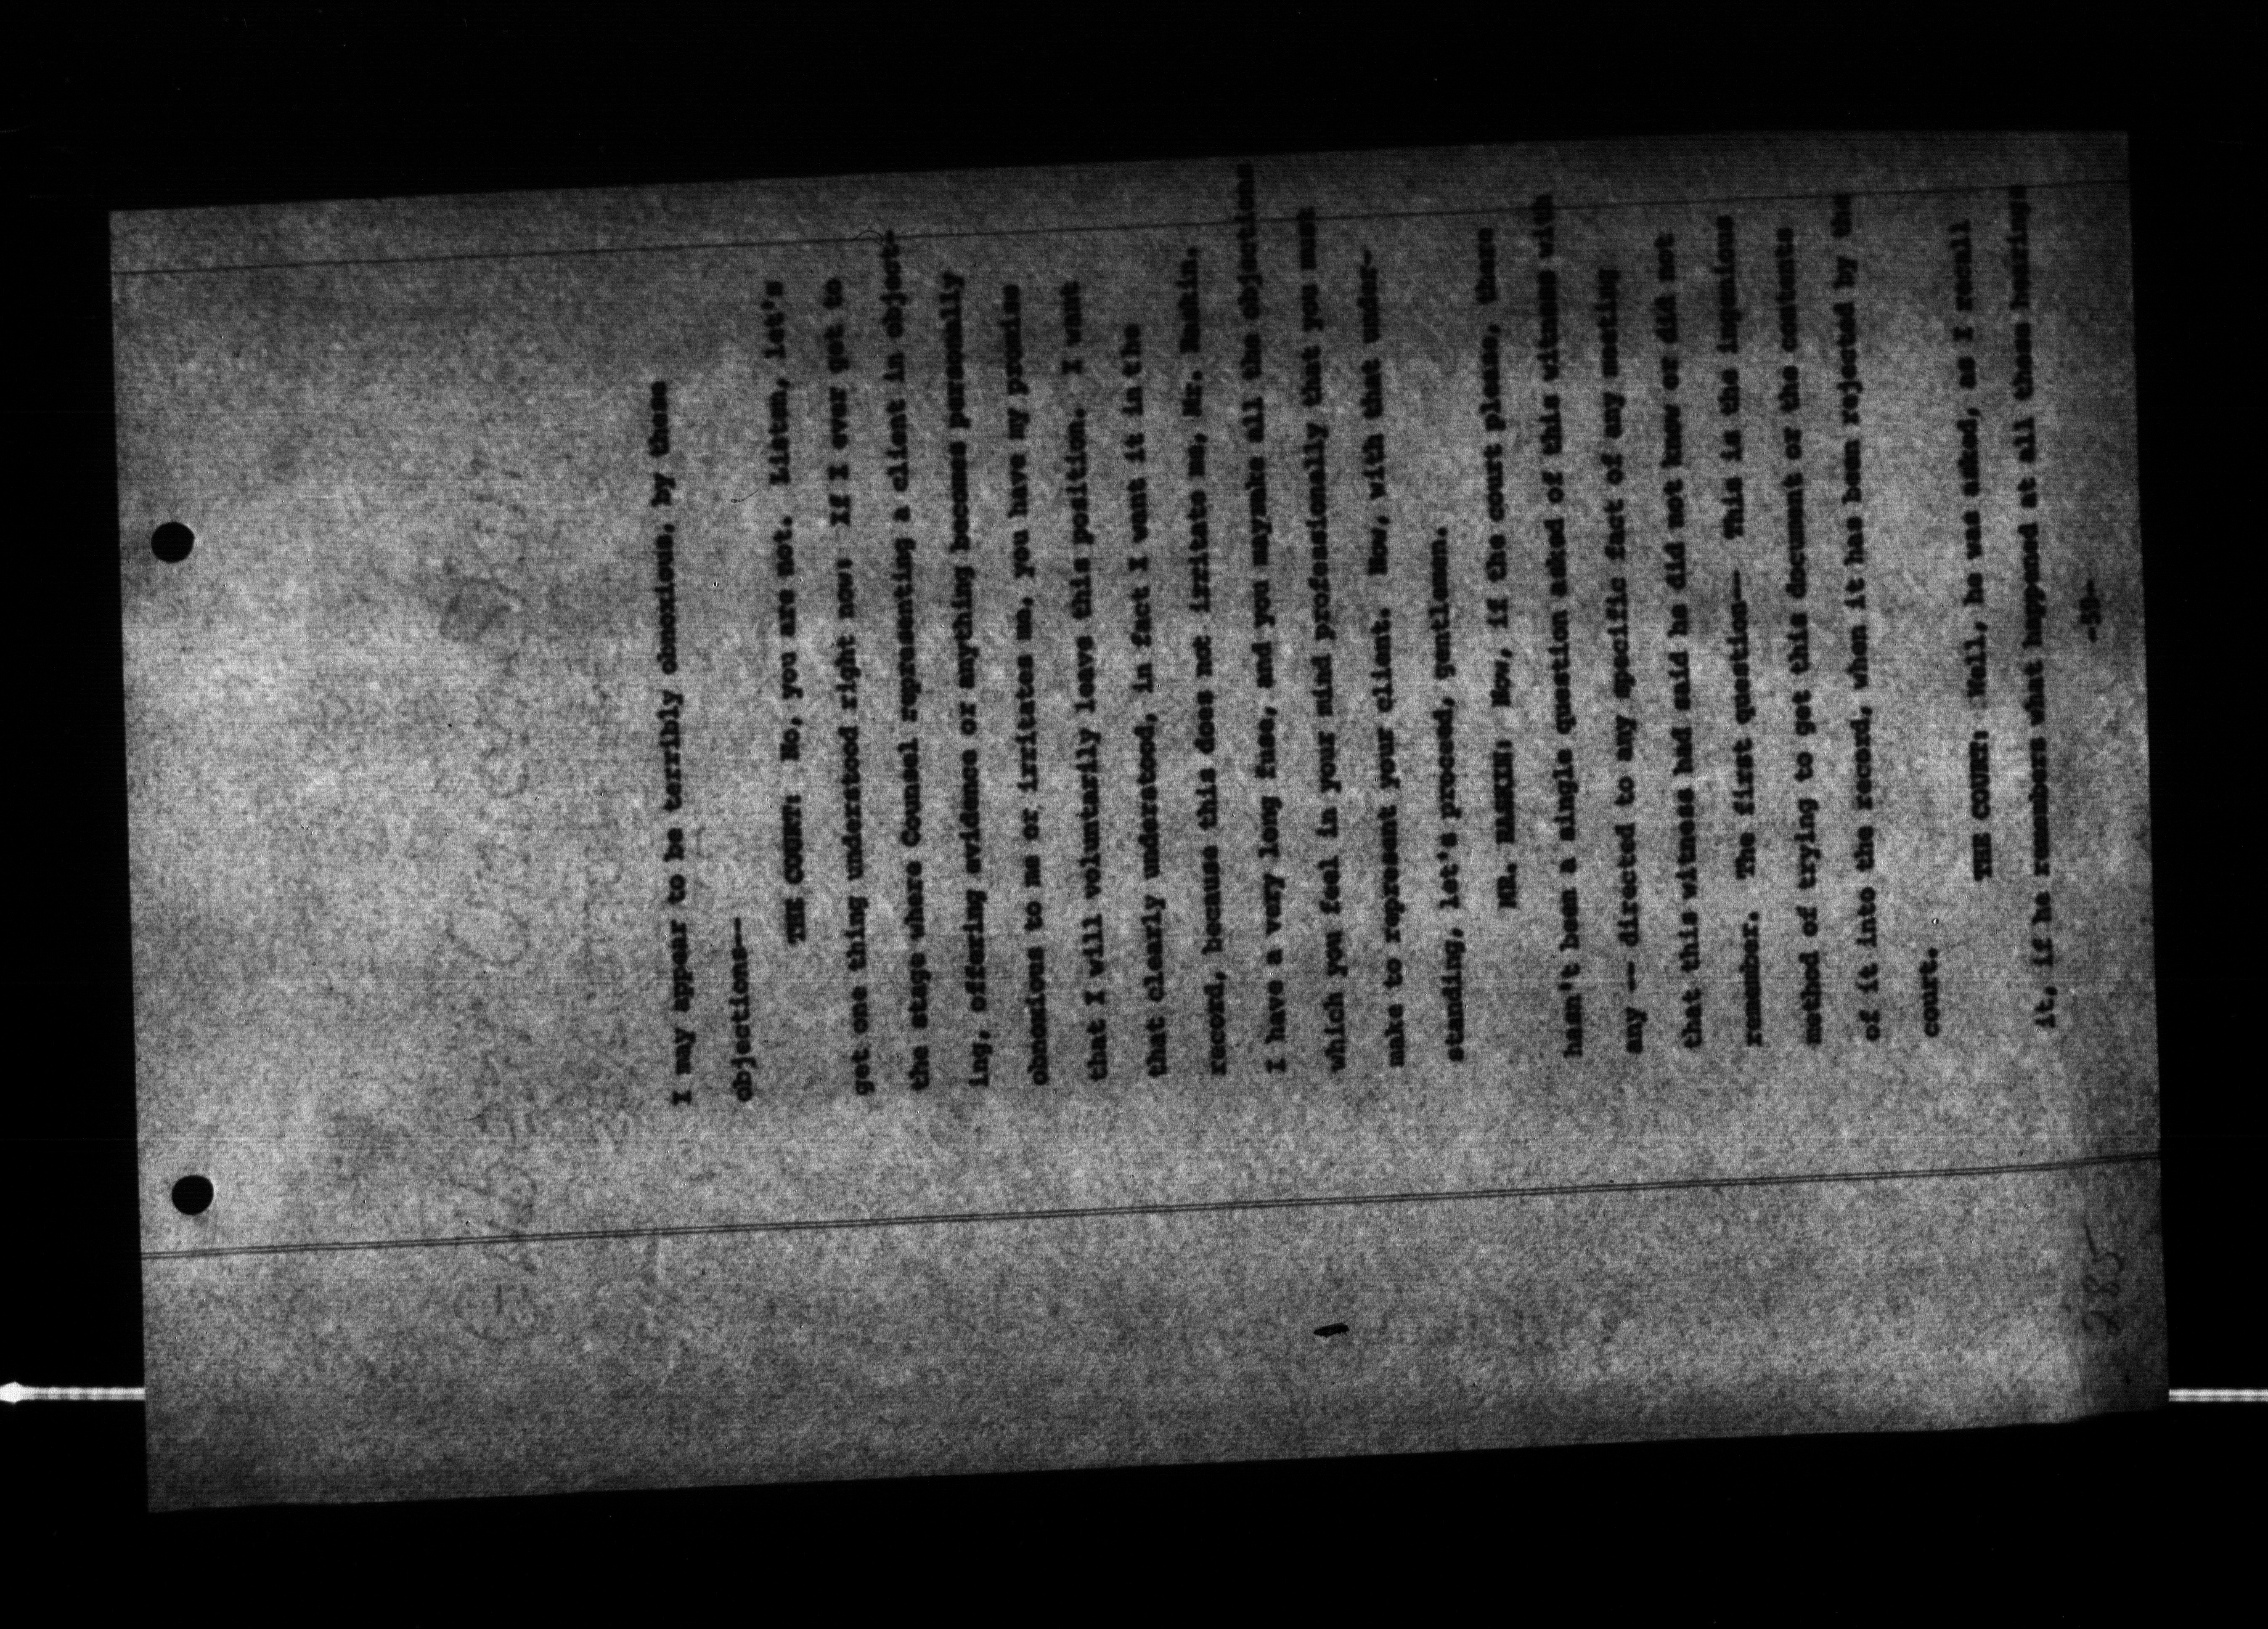 I may appear to be terribly obnoxious, by these
objections--
THE COURT: No, you are not. Listen, let's
get one thing understood right now: If I ever get to
the stage where Counsel representing a client in object-
ing, offering evidence or anything becomes personally
obnoxious to me or irritates me, you have my promise
that I will voluntarily leave this position. I want
that clearly understood, in fact I want it in the
record, because this does not irritate me, Mr. Raskin.
I have a very long fuse, and you maymake all the objections
which you feel in your mind professionally that you must
make to represent your client. Now, with that under-
standing, let's proceed, gentlemen.
MR. RASKIN: Now, if the court please, there
hasn't been a single question asked of this witness with
any -- directed to any specific fact of any meeting
that this witness had said he did not know or did not
remember. The first question-- This is the ingenious
method of trying to get this document or the contents
of it into the record, when it has been rejected by the
court.
THE COURT: Well, he was asked, as I recall
it, if he remembers what happened at all these hearings
-59-
285